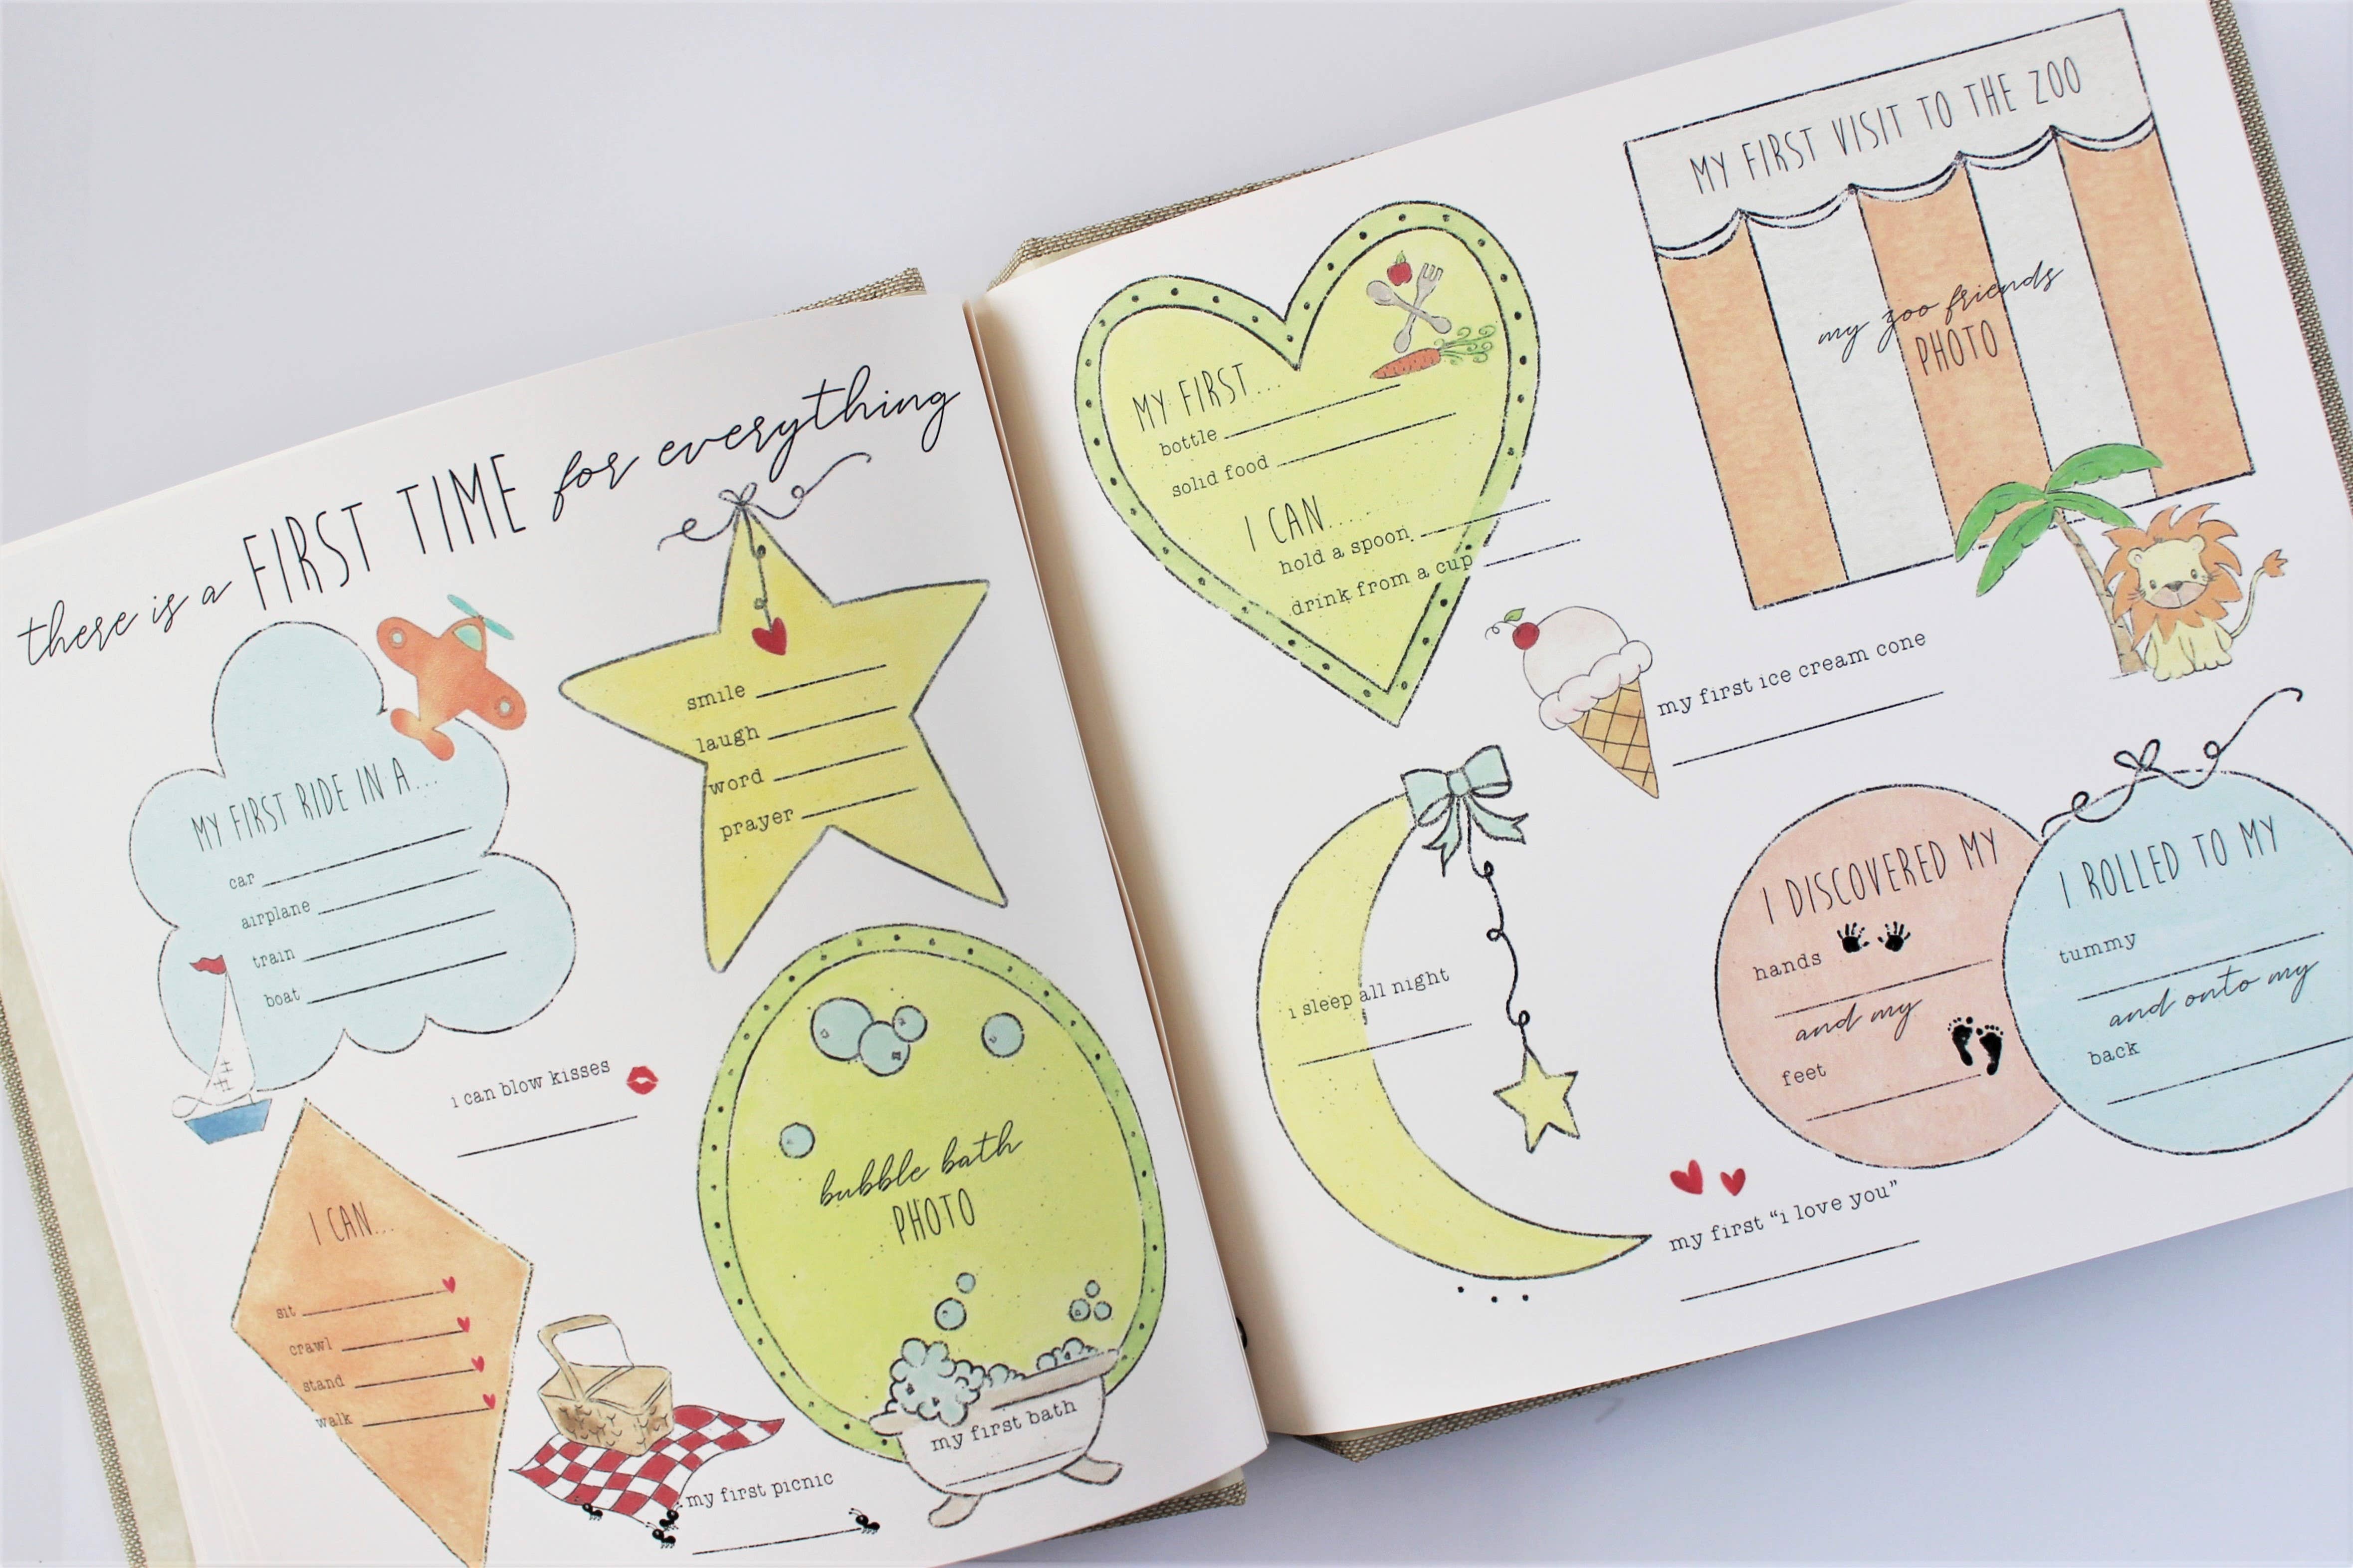 there is a FIRST TIME for everything
MY FIRST RIDE IN A...
car
airplane
train
boat
smile
laugh
word
prayer
i can blow kisses
I CAN...
sit
crawl
stand
walk
bubble bath
PHOTO
my first bath
my first picnic
MY FIRST...
bottle
solid food
I CAN.....
hold a spoon
drink from a cup
MY FIRST VISIT TO THE ZOO
my zoo friends
PHOTO
my first ice cream cone
i sleep all night
I DISCOVERED MY
hands
and my
feet
I ROLLED TO MY
tummy
and onto my
back
my first "i love you"